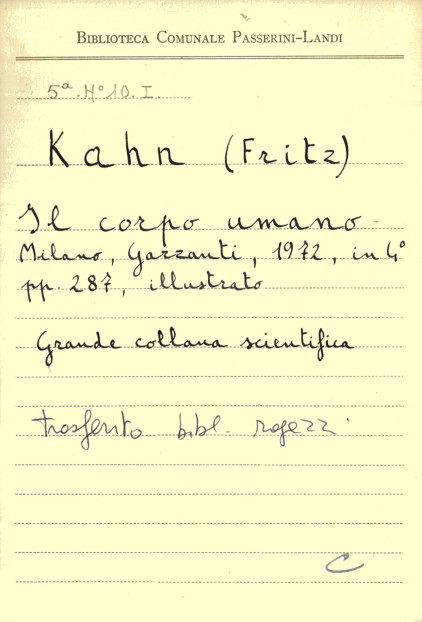 BIBLIOTECA COMUNALE PASSERINI-LANDI
5ª. Nº 10. I.
Kahn (Fritz)
Il corpo umano
Milano, Garzanti, 1972, in 4º
pp. 287, illustrato
Grande collana scientifica
trasferito bibl. ragazzi
C